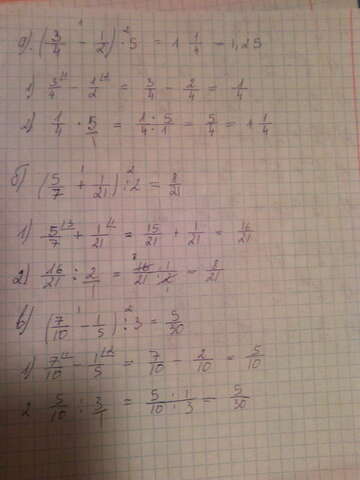 а) (3/4 - 1/2) · 5 = 1 1/4 = 1,25
1) 3/4 - 1/2 = 3/4 - 2/4 = 1/4
2) 1/4 · 5/1 = 1·5/4·1 = 5/4 = 1 1/4
б) (5/7 + 1/21) : 2 = 8/21
1) 5/7 + 1/21 = 15/21 + 1/21 = 16/21
2) 16/21 : 2/1 = 16·1/21·2 = 8/21
в) (7/10 - 1/5) : 3 = 5/30
1) 7/10 - 1/5 = 7/10 - 2/10 = 5/10
2 5/10 : 3/1 = 5·1/10·3 = 5/30